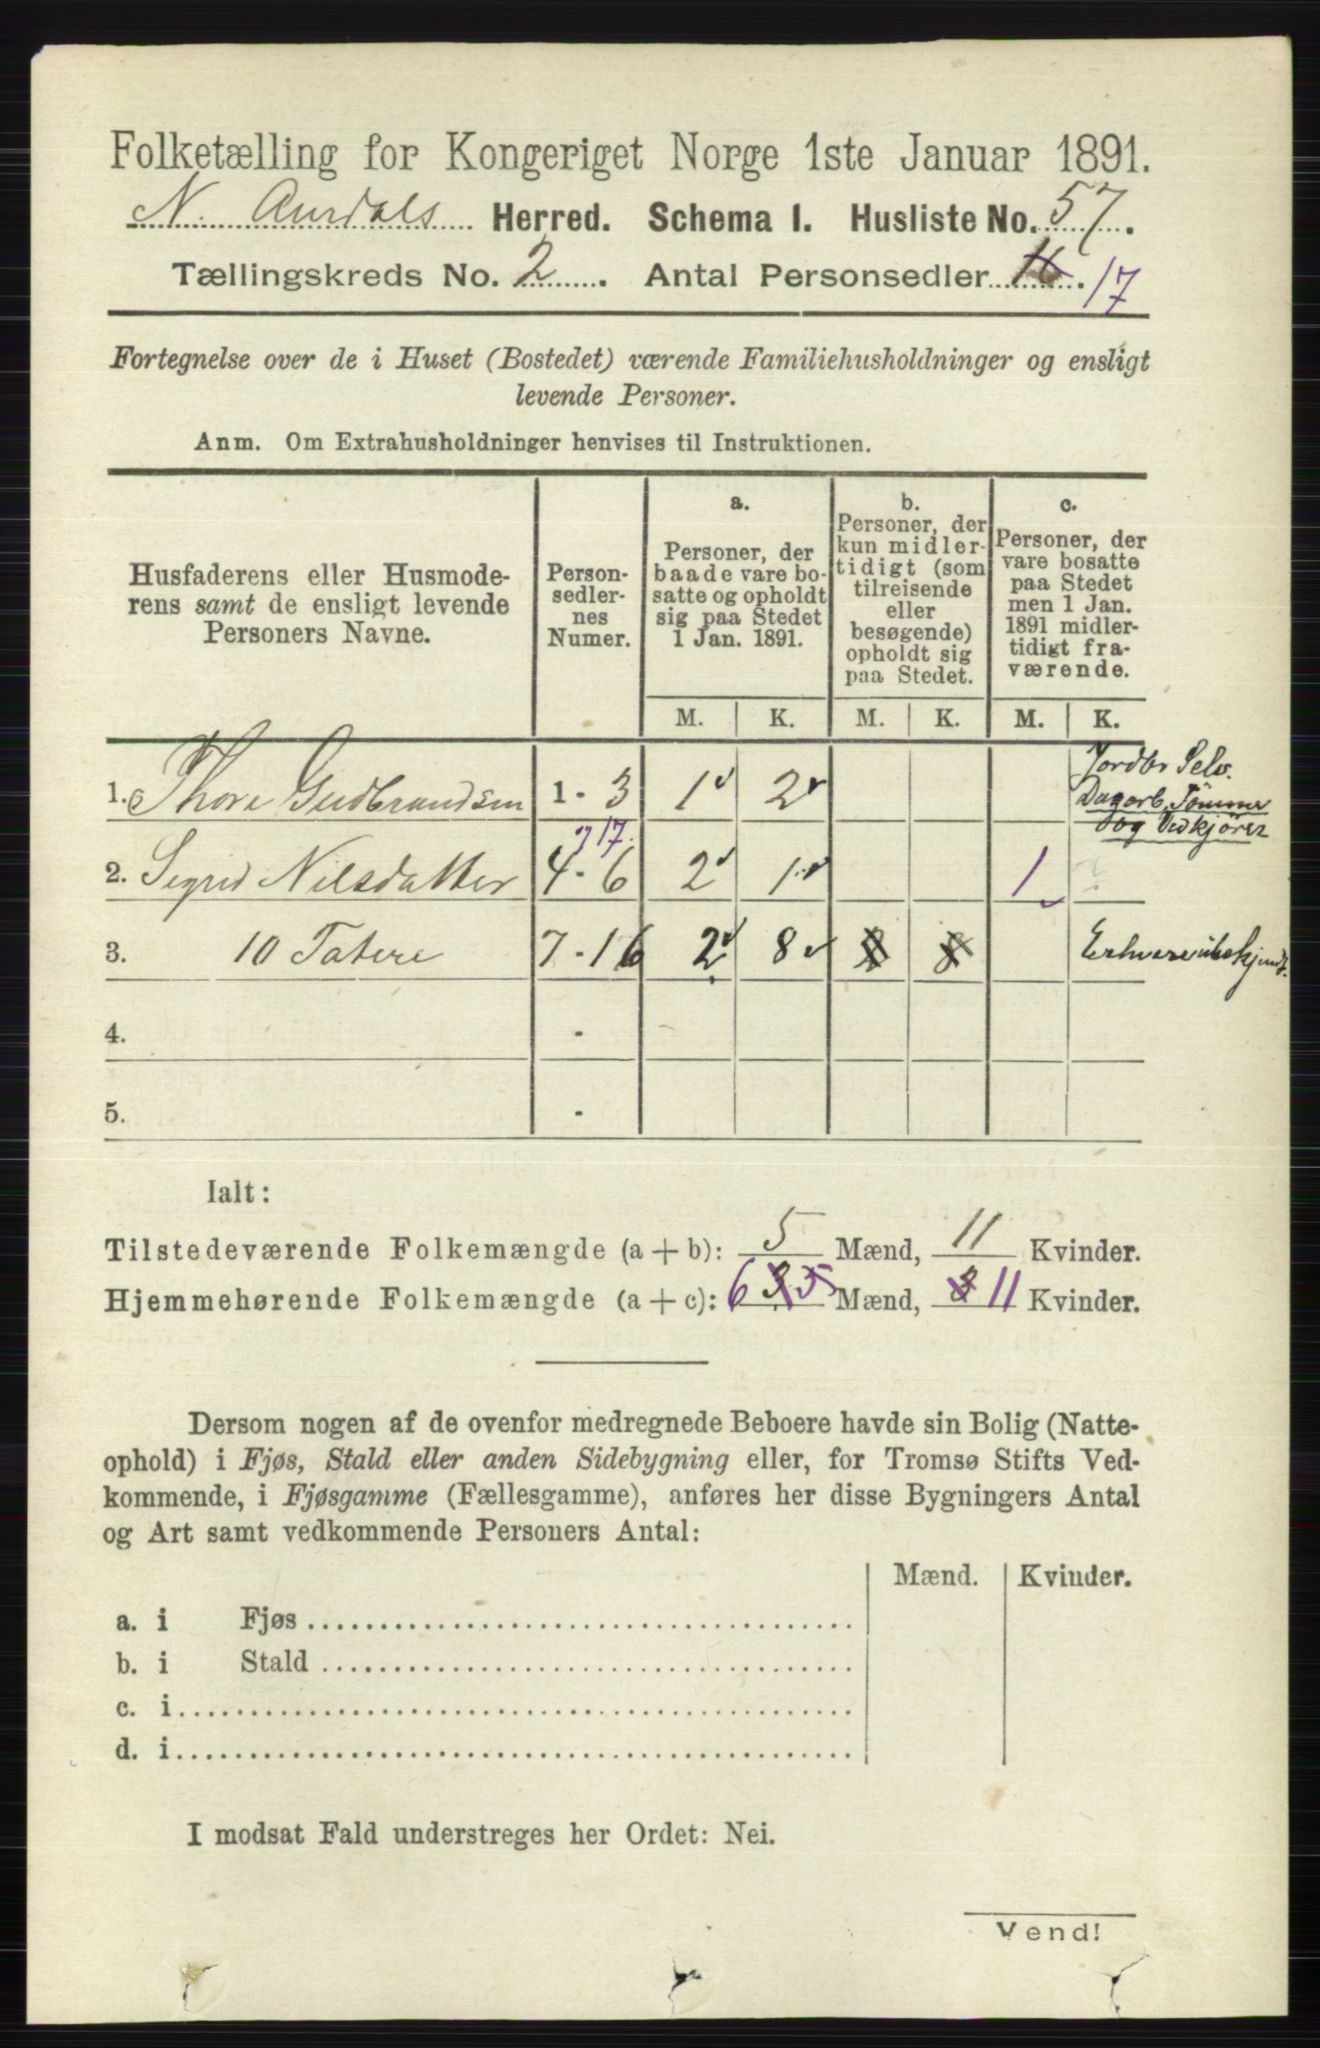 Folketælling for Kongeriget Norge 1ste Januar 1891.
N. Aurdals Herred. Schema I. Husliste No. 57.
Tællingskreds No. 2. Antal Personsedler 16. 17
Fortegnelse over de i Huset (Bostedet) værende Familiehusholdninger og ensligt
levende Personer.
Anm. Om Extrahusholdninger henvises til Instruktionen.
Husfaderens eller Husmode-
rens samt de ensligt levende
Personers Navne.
Person-
sedler-
nes
Numer.
a.
Personer, der
baade vare bo-
satte og opholdt
sig paa Stedet
1 Jan. 1891.
b.
Personer, der
kun midler-
tidigt (som
tilreisende
eller
besøgende)
opholdt sig
paa Stedet.
c.
Personer, der
vare bosatte
paa Stedet
men 1 Jan.
1891 midler-
tidigt fra-
værende.
M. K. M. K. M. K.
Jordbr Selv.
Dagarb, Tømmer
og Vedkjører
1. Thore Gudbrandsen 1 - 3 1 2
17.
2. Sigrid Nilsdatter 4 - 6 2 1 1
3. 10 Tatere 7 - 16 2 8 Erhverv ubekjendt.
4. -
5. -
Ialt:
Tilstedeværende Folkemængde (a + b): 5 Mænd, 11 Kvinder.
Hjemmehørende Folkemængde (a + c): 6 3 5 Mænd, 3 11 Kvinder.
Dersom nogen af de ovenfor medregnede Beboere havde sin Bolig (Natte-
ophold) i Fjøs, Stald eller anden Sidebygning eller, for Tromsø Stifts Ved-
kommende, i Fjøsgamme (Fællesgamme), anføres her disse Bygningers Antal
og Art samt vedkommende Personers Antal:
Mænd. Kvinder.
a. i Fjøs
b. i Stald
c. i
d. i
I modsat Fald understreges her Ordet: Nei.
Vend!